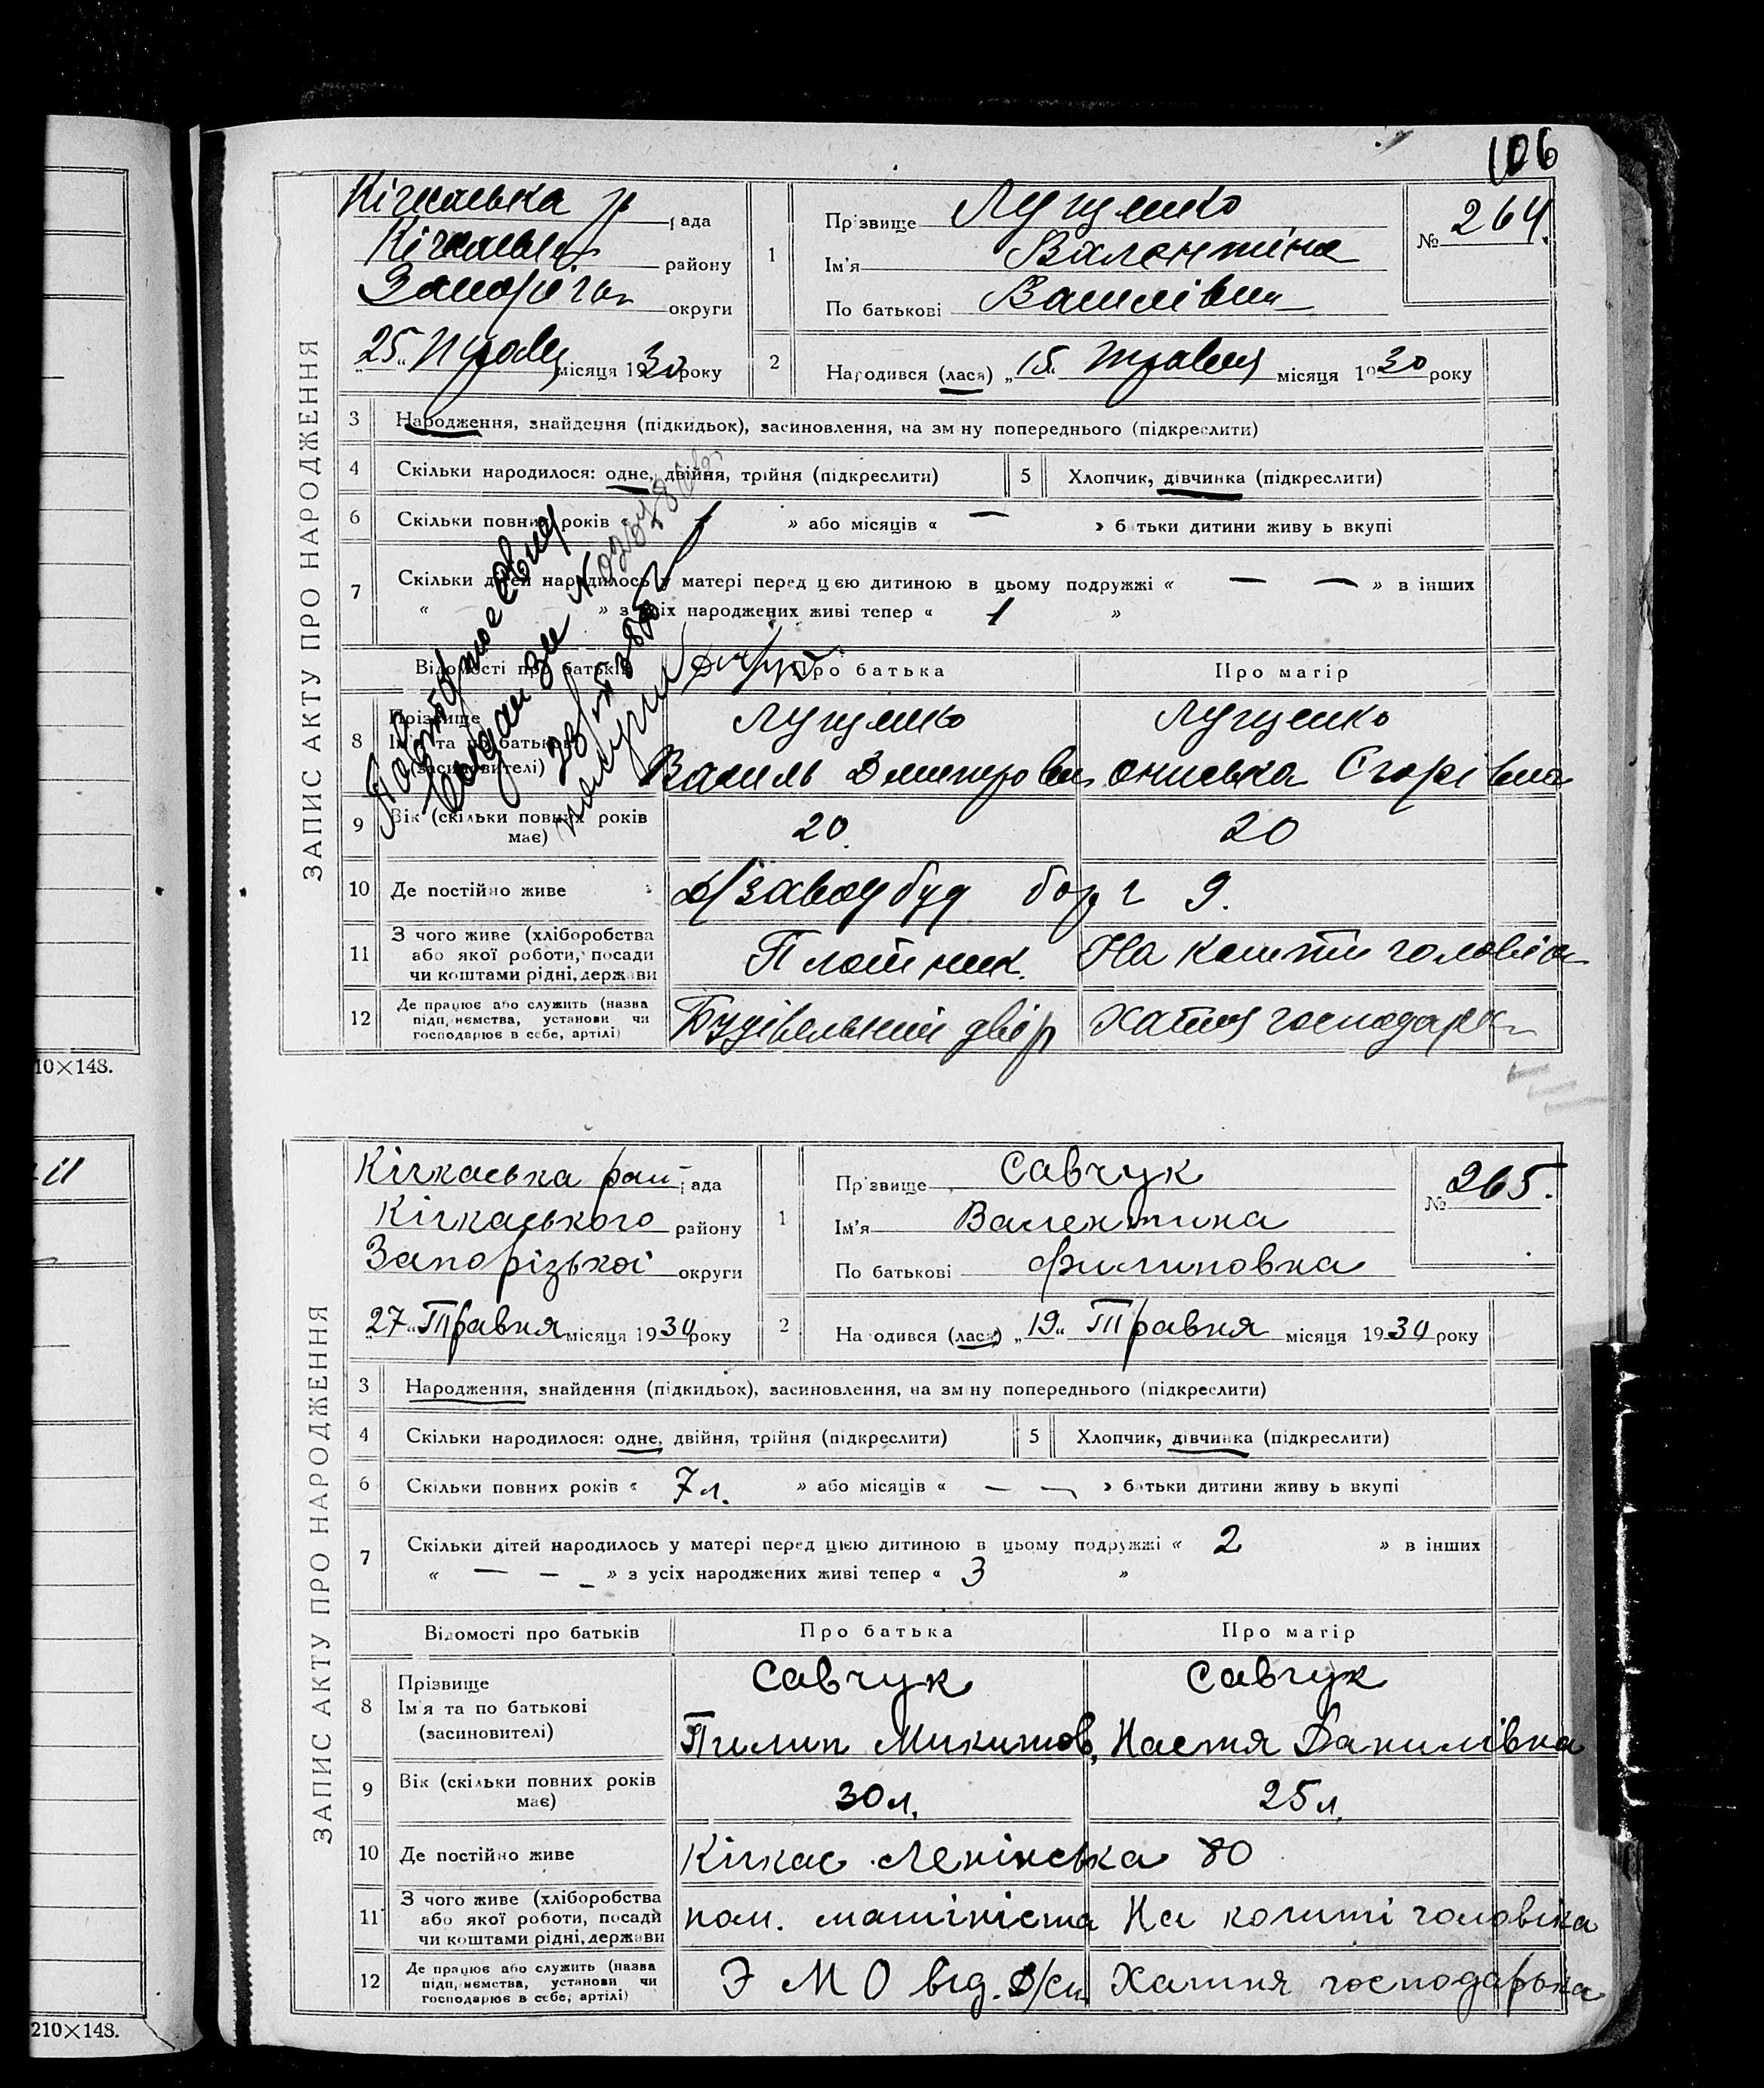 106
ЗАПИС АКТУ ПРО НАРОДЖЕННЯ
Кічкаська р рада
Кічкаськ району
Запоріж округи
„25“ травня місяця 1930 року
1
Прізвище Луценко
Ім'я Валентіна
По батькові Василівна
№ 264.
2
Народився (лася) „15“ травня місяця 1930 року
3 Народження, знайдення (підкидьок), засиновлення, на зміну попереднього (підкреслити)
4 Скільки народилося: одне, двійня, трійня (підкреслити)
5 Хлопчик, дівчинка (підкреслити)
6 Скільки повних років « 1 » або місяців « — » батьки дитини живуть вкупі
7 Скільки дітей народилось у матері перед цією дитиною в цьому подружжі « — — » в інших
« » з усіх народжених живі тепер « 1 »
Повторное свид
выдан за №
получил
Відомості про батьків Про батька Про матір
8 Прізвище
Ім'я та по батькові
(засиновителі)
Луценко Луценко
Василь Дмитрович Ониська Єгорівна
9 Вік (скільки повних років має) 20. 20
10 Де постійно живе Д/заводбуд 9.
11 З чого живе (хліборобства або якої роботи, посади чи коштами рідні, держави
Плотник. На кошти чоловіка
12 Де працює або служить (назва підприємства, установи чи господарює в себе, артілі)
Будівельний двір Хатня господарка
10×148.
ЗАПИС АКТУ ПРО НАРОДЖЕННЯ
Кічкаська рай рада
Кічкаського району
Запорізької округи
„27“ Травня місяця 1930 року
1
Прізвище Савчук
Ім'я Валентина
По батькові Филиповна
№ 265.
2
Народився (лася) „19“ Травня місяця 1930 року
3 Народження, знайдення (підкидьок), засиновлення, на зміну попереднього (підкреслити)
4 Скільки народилося: одне, двійня, трійня (підкреслити)
5 Хлопчик, дівчинка (підкреслити)
6 Скільки повних років « 7 л. » або місяців « — — » батьки дитини живуть вкупі
7 Скільки дітей народилось у матері перед цією дитиною в цьому подружжі « 2 » в інших
« — — — » з усіх народжених живі тепер « 3 »
Відомості про батьків Про батька Про матір
8 Прізвище
Ім'я та по батькові
(засиновителі)
Савчук Савчук
Пилип Микитов. Настя Данилівна
9 Вік (скільки повних років має) 30 л. 25 л.
10 Де постійно живе Кічкас Ленінська 80
11 З чого живе (хліборобства або якої роботи, посади чи коштами рідні, держави
пом. машиніста На кошти чоловіка
12 Де працює або служить (назва підприємства, установи чи господарює в себе, артілі)
Э М О від. Д/Сп. Хатня господарька
210×148.